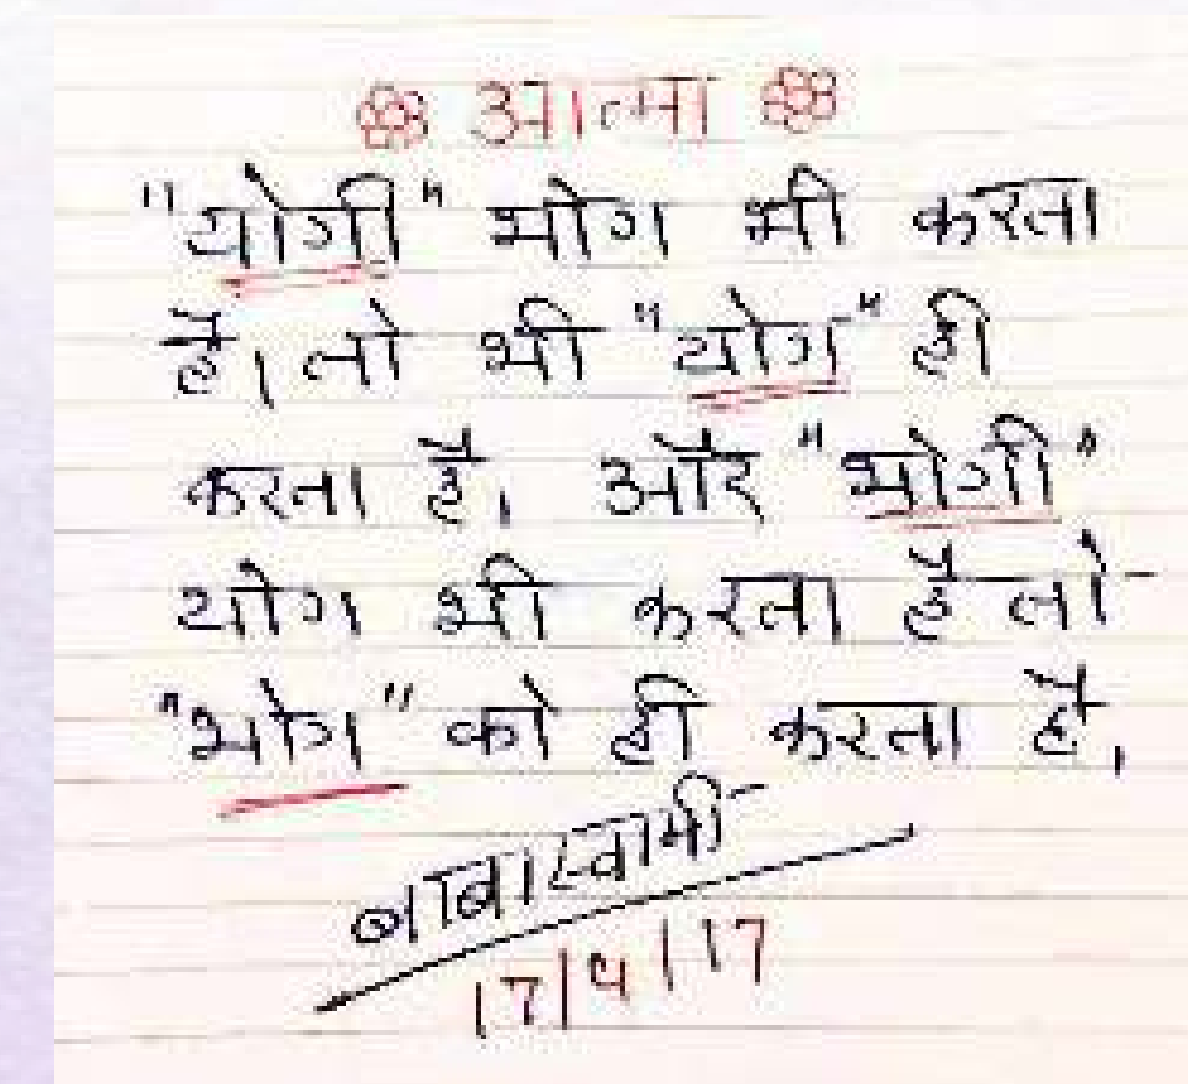 आत्मा
"योगी" भोग भी करता
है। तो भी "योग" ही
करता है। और "भोगी"
योग भी करता है तो
"भोग" को ही करता है।
बाबास्वामी
17/4/17